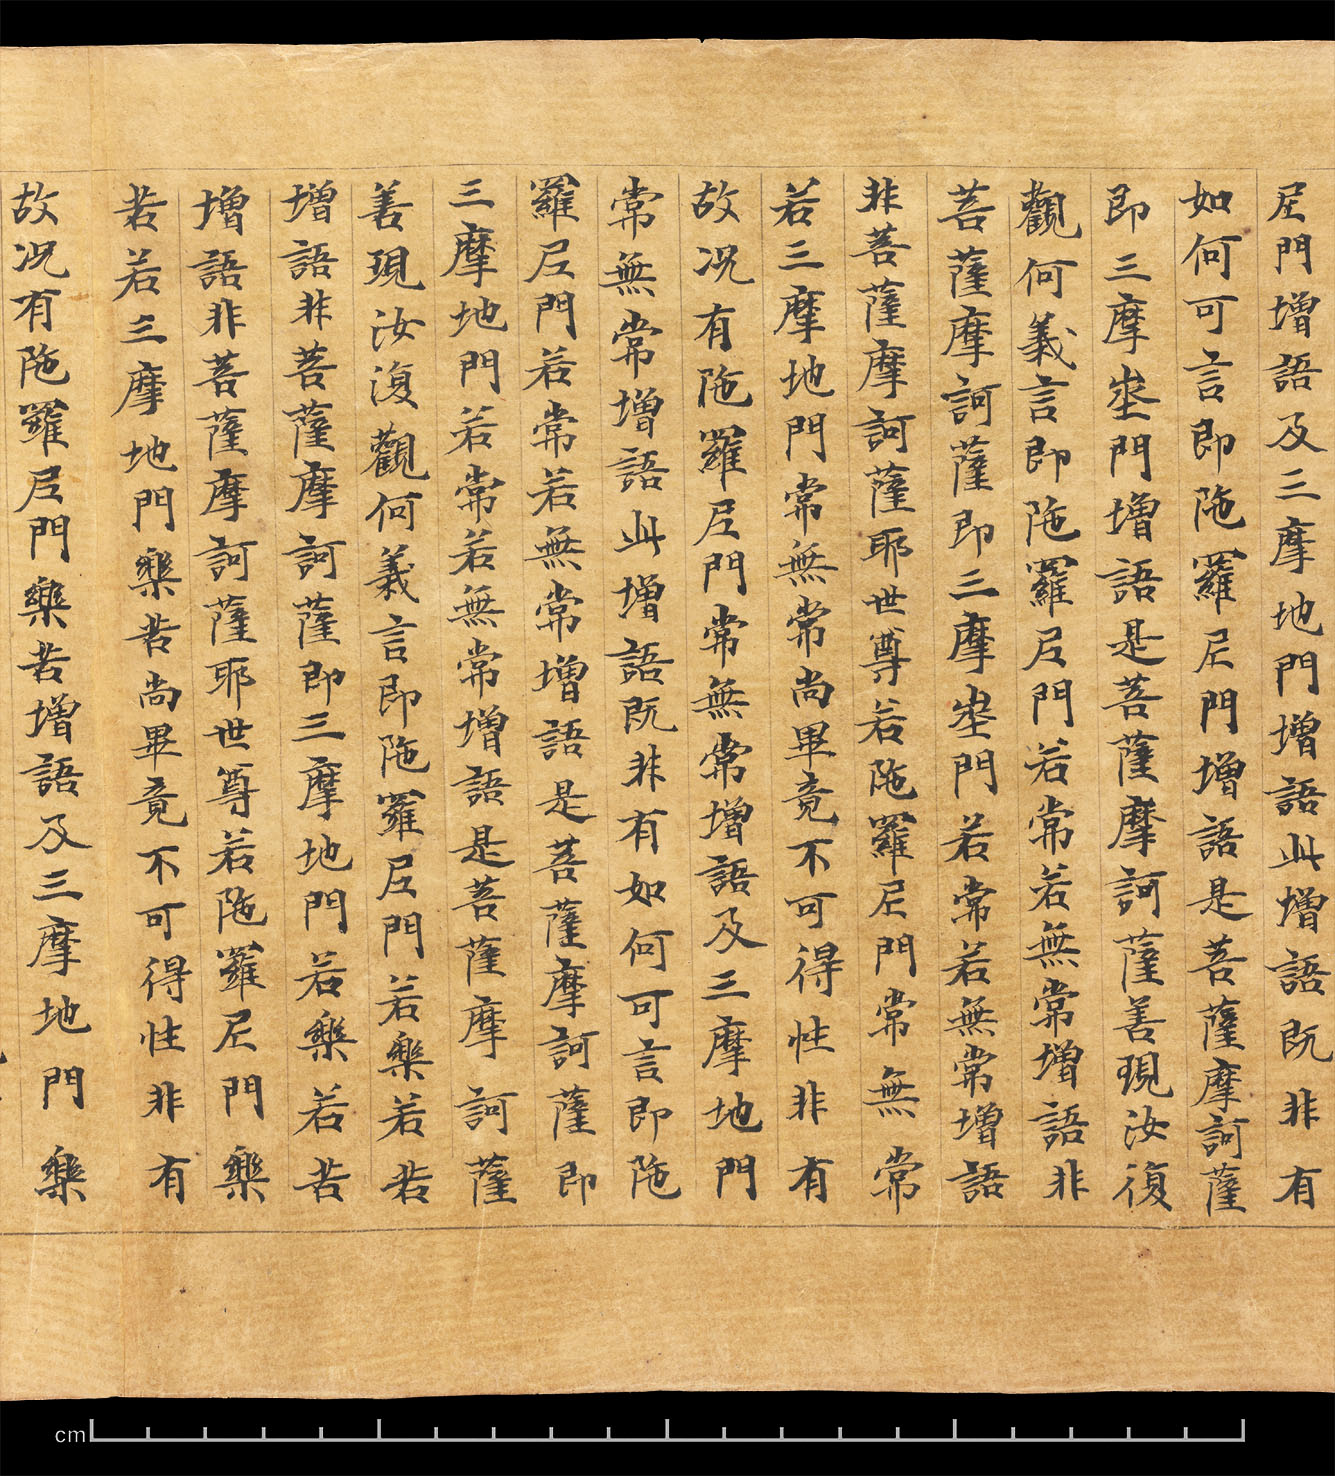 尼門增語及三摩地門增語此增語既非有
如何可言即陁羅尼門增語是菩薩摩訶薩
即三摩埊門增語是菩薩摩訶薩善現汝復
觀何義言即陁羅尼門若常若無常增語非
菩薩摩訶薩即三摩埊門若常若無常增語
非菩薩摩訶薩耶世尊若陁羅尼門常無常
若三摩地門常無常尚畢竟不可得性非有
故况有陁羅尼門常無常增語及三摩地門
常無常增語此增語既非有如何可言即陁
羅尼門若常若無常增語是菩薩摩訶薩即
三摩地門若常若無常增語是菩薩摩訶薩
善現汝復觀何義言即陁羅尼門若樂若苦
增語非菩薩摩訶薩即三摩地門若樂若苦
增語非菩薩摩訶薩耶世尊若陁羅尼門樂
苦若三摩地門樂苦尚畢竟不可得性非有
故况有陁羅尼門樂苦增語及三摩地門樂
cm